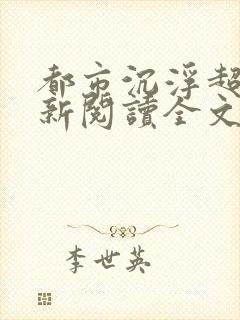 都市沉浮超
新閱讀全文
李世英